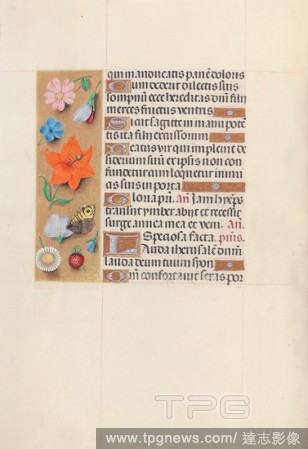 qui manducatis panem doloris
Cum dederit dilectis suis
sompnum ecce hereditas domini filii
merces fructus ventris
Sicut sagitte in manu poten
tis ita filii excussorum
Beatus vir qui implevit de
siderium suum ex ipsis non con
fundetur cum loquetur inimi
cis suis in porta
Gloria pri. an Iam hyeps
transiit ymber abiit et recessit
surge amica mea et veni. an.
Speciosa facta. psms.
Lauda iherusalem dominum
lauda deum tuum syon
Quoniam confortavit seras por
TPG
www.tpgnews.com/ 達志影像